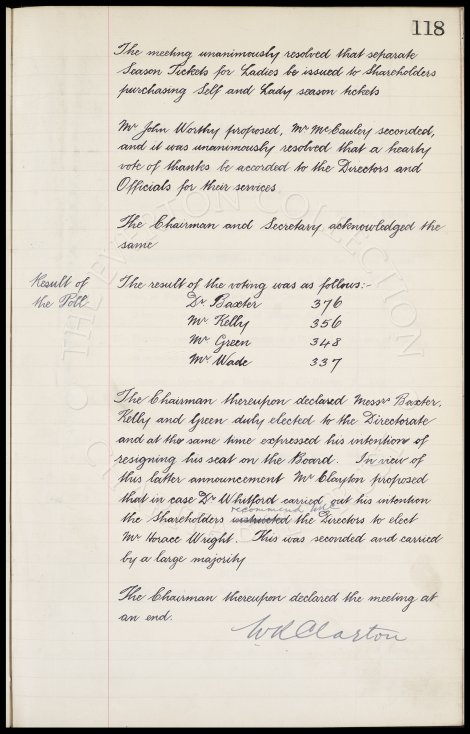 118
The meeting unanimously resolved that separate
Season Tickets for Ladies be issued to Shareholders
purchasing Self and Lady season tickets
Mr John Worthy proposed, Mr McCauley seconded,
and it was unanimously resolved that a hearty
vote of thanks be accorded to the Directors and
Officials for their services
The Chairman and Secretary acknowledged the
same
Result of
the Poll
The result of the voting was as follows:-
Dr Baxter 376
Mr Kelly 356
Mr Green 348
Mr Wade 337
The Chairman thereupon declared Messrs Baxter,
Kelly and Green duly elected to the Directorate
and at the same time expressed his intention of
resigning his seat on the Board. In view of
this latter announcement Mr Clayton proposed
that in case Dr Whitford carried out his intention
recommend
the Shareholders instructed the Directors to elect
Mr Horace Wright. This was seconded and carried
by a large majority
The Chairman thereupon declared the meeting at
an end.
THE EVERTON COLLECTION